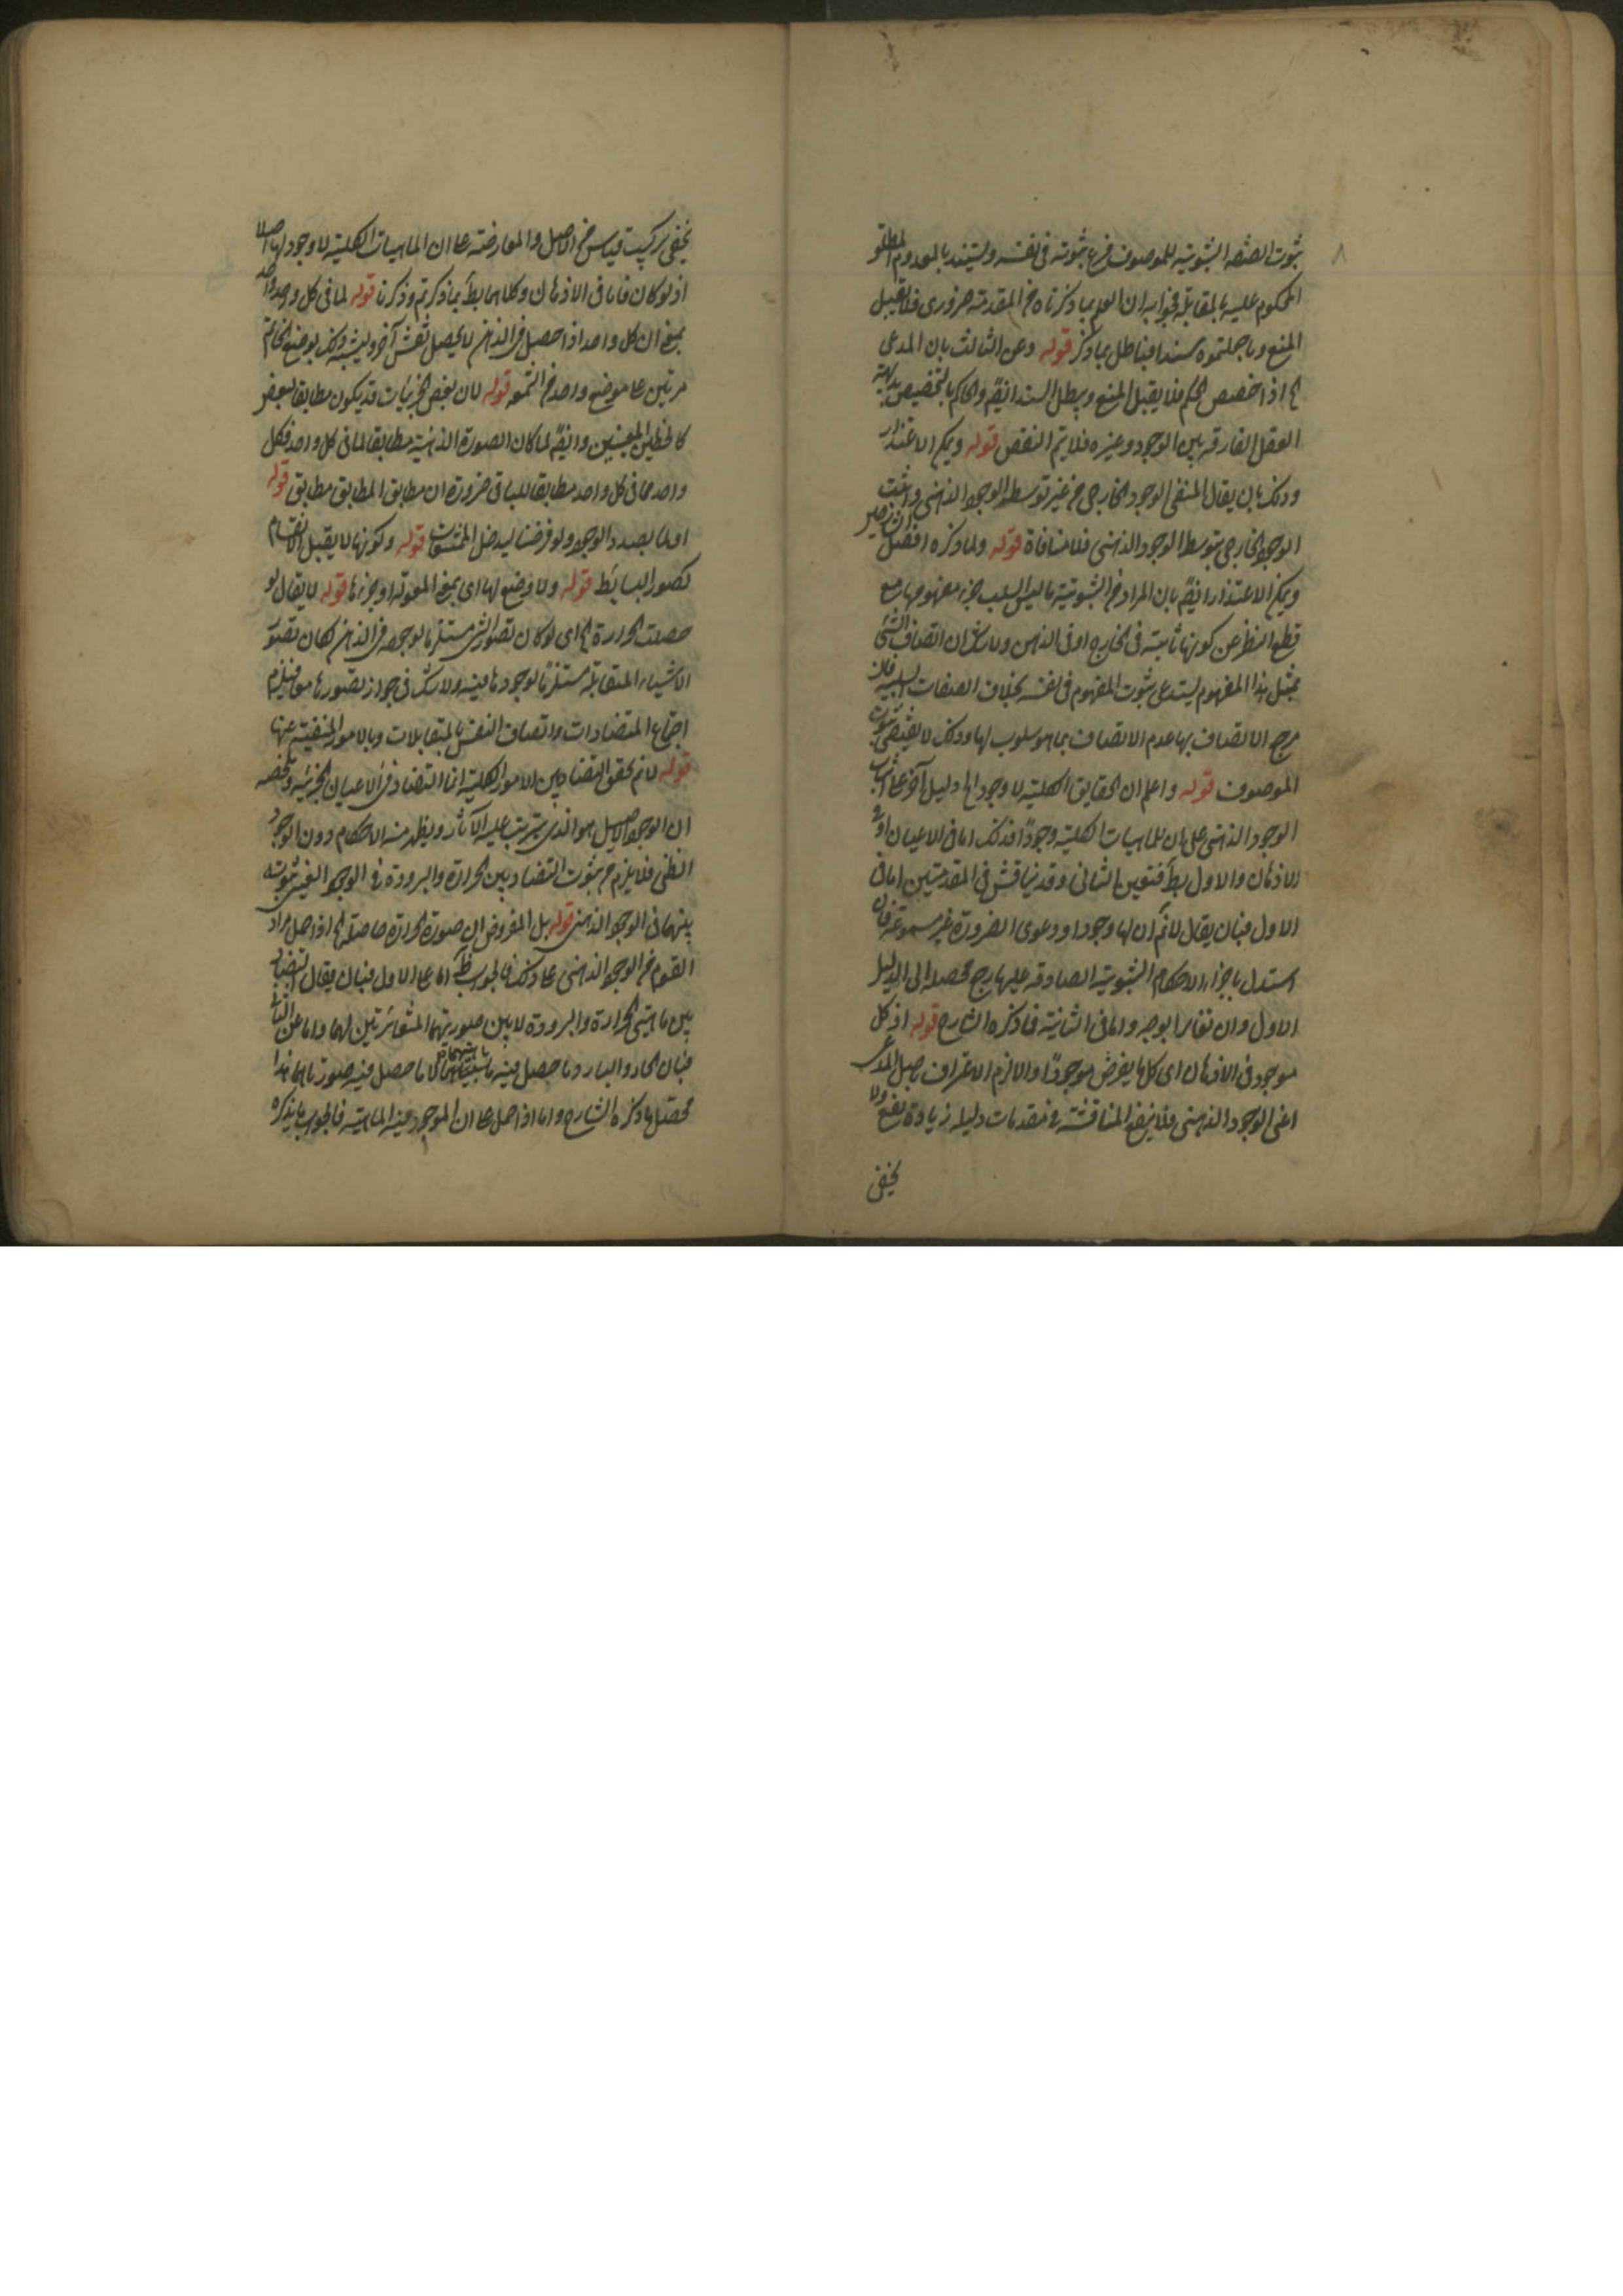 ٨
ثبوت الصفة الثبوتية للموصوف فرع ثبوته فى نفسه ويستند بالمعدوم المطلق
المحكوم عليه بالمقابلة فجوابه ان العلم بما ذكرناه من المقدمة ضرورى فلا يقبل
المنع وما جعلتموه سندا فباطل بما ذكر قوله وعن الثالث بان المدعى
اذا خصص الحكم فلا يقبل المنع ويبطل السند ايضا والحاكم بالتخصيص بديهة
العقل الفارقة بين الوجود وغيره فلا يتم النقض قوله ويمكن الاعتذار
وذلك بان يقال المنفى الوجود الخارجى من غير توسط الوجود الذهنى واثبت
الوجود الخارجى بتوسط الوجود الذهنى فلا منافاة قوله ولما ذكره افضل
ويمكن الاعتذار ايضا بان المراد من الثبوتية ما ليس السلب جزء مفهومها مع
قطع النظر عن كونها ثابتة فى الخارج او فى الذهن ولا شك ان اتصاف الشئ
بمثل هذا المفهوم يستدعى ثبوت المفهوم فى نفسه بخلاف الصفات السلبية فان
مرجع الاتصاف بها عدم الاتصاف بما هو سلوب لها وذلك لا يقتضى ثبوت
الموصوف قوله واعلم ان الحقايق الكلية لا وجود لها دليل آخر على اثبات
الوجود الذهنى على ان للماهيات الكلية وجودا فذلك اما فى الاعيان او فى
الاذهان والاول بط فتعين الثانى وقد يناقش فى المقدمتين اما فى
الاول فبان يقال لانم ان لها وجودا ودعوى الضرورة غير مسموعة فان
استدل باجراء الاحكام الثبوتية الصادقة عليها رجع محصله الى الدليل
الاول وان تغايرا بوجه واما فى الثانية فما ذكره الشارح قوله اذ كل
موجود فى الاذهان اى كل ما يفرض موجودا والا لزم الاعتراف باصل المدعى
اعنى الوجود الذهنى فلا ينفع المناقشة فى مقدمات دليله زيادة نفع ولا
يخفى
يخفى تركيب قياس من الاصل والمعارضة على ان الماهيات الكلية لا وجود لها اصلا
اذ لو كان فاما فى الاذهان وكلاهما بط بما ذكرتم وذكرنا قوله لما فى كل واحد واحد
بمعنى ان كل واحد اذا حصل فى الذهن لا يحصل نقش آخر ويشبه ذلك بوضع الخاتم
مرتين على موضع واحد من الشمعة قوله لان بعض الجزئيات قد يكون مطابقا لبعض
كالخطين المعينين وايضا لما كان الصورة الذهنية مطابقا لما فى كل واحد فكل
واحد مما فى كل واحد مطابقا للباقى ضرورة ان مطابق المطابق مطابق قوله
اولنا بصدد الوجود ولو فرضنا ليدخل المشتقات قوله وكونها لا يقبل الانقسام
كصور البسائط قوله ولا وضع لها اى بمعنى المقولة او جزئها قوله لا يقال لو
حصلت الحرارة اى لو كان تصور الشئ مستلزما لوجوده فى الذهن لكان تصور
الاشياء المتقابلة مستلزما لوجودها فيه ولا شك فى جواز تصورها معا فيلزم
اجتماع المتضادات واتصاف النفس بالمتقابلات وبالامور المنفية عنها
قوله لانم تحقق التضاد بين الامور الكلية انما التضاد فى الاعيان الجزئية وملخصه
ان الوجود الاصيل هو الذى يترتب عليه الآثار ويظهر منه الاحكام دون الوجود
الظلى فلا يلزم من ثبوت التضاد بين الحرارة والبرودة فى الوجود العينى ثبوته
بينهما فى الوجود الذهنى قوله بل المفروض ان صورة الحرارة حاصلة اذا حمل مراد
القوم من الوجود الذهنى على ذلك فالجواب ظ اما على الاول فبان يقال التضاد
بين ماهيتى الحرارة والبرودة لا بين صورتيهما المتغائرتين لهما واما عن الثانى
فبان الحار والبارد ما حصل فيه ماهيتهما لا ما حصل فيه صورتاهما هذا
محصل ما ذكره الشارح واما اذا حمل على ان الموجود عين الماهية فالجواب ما يذكره